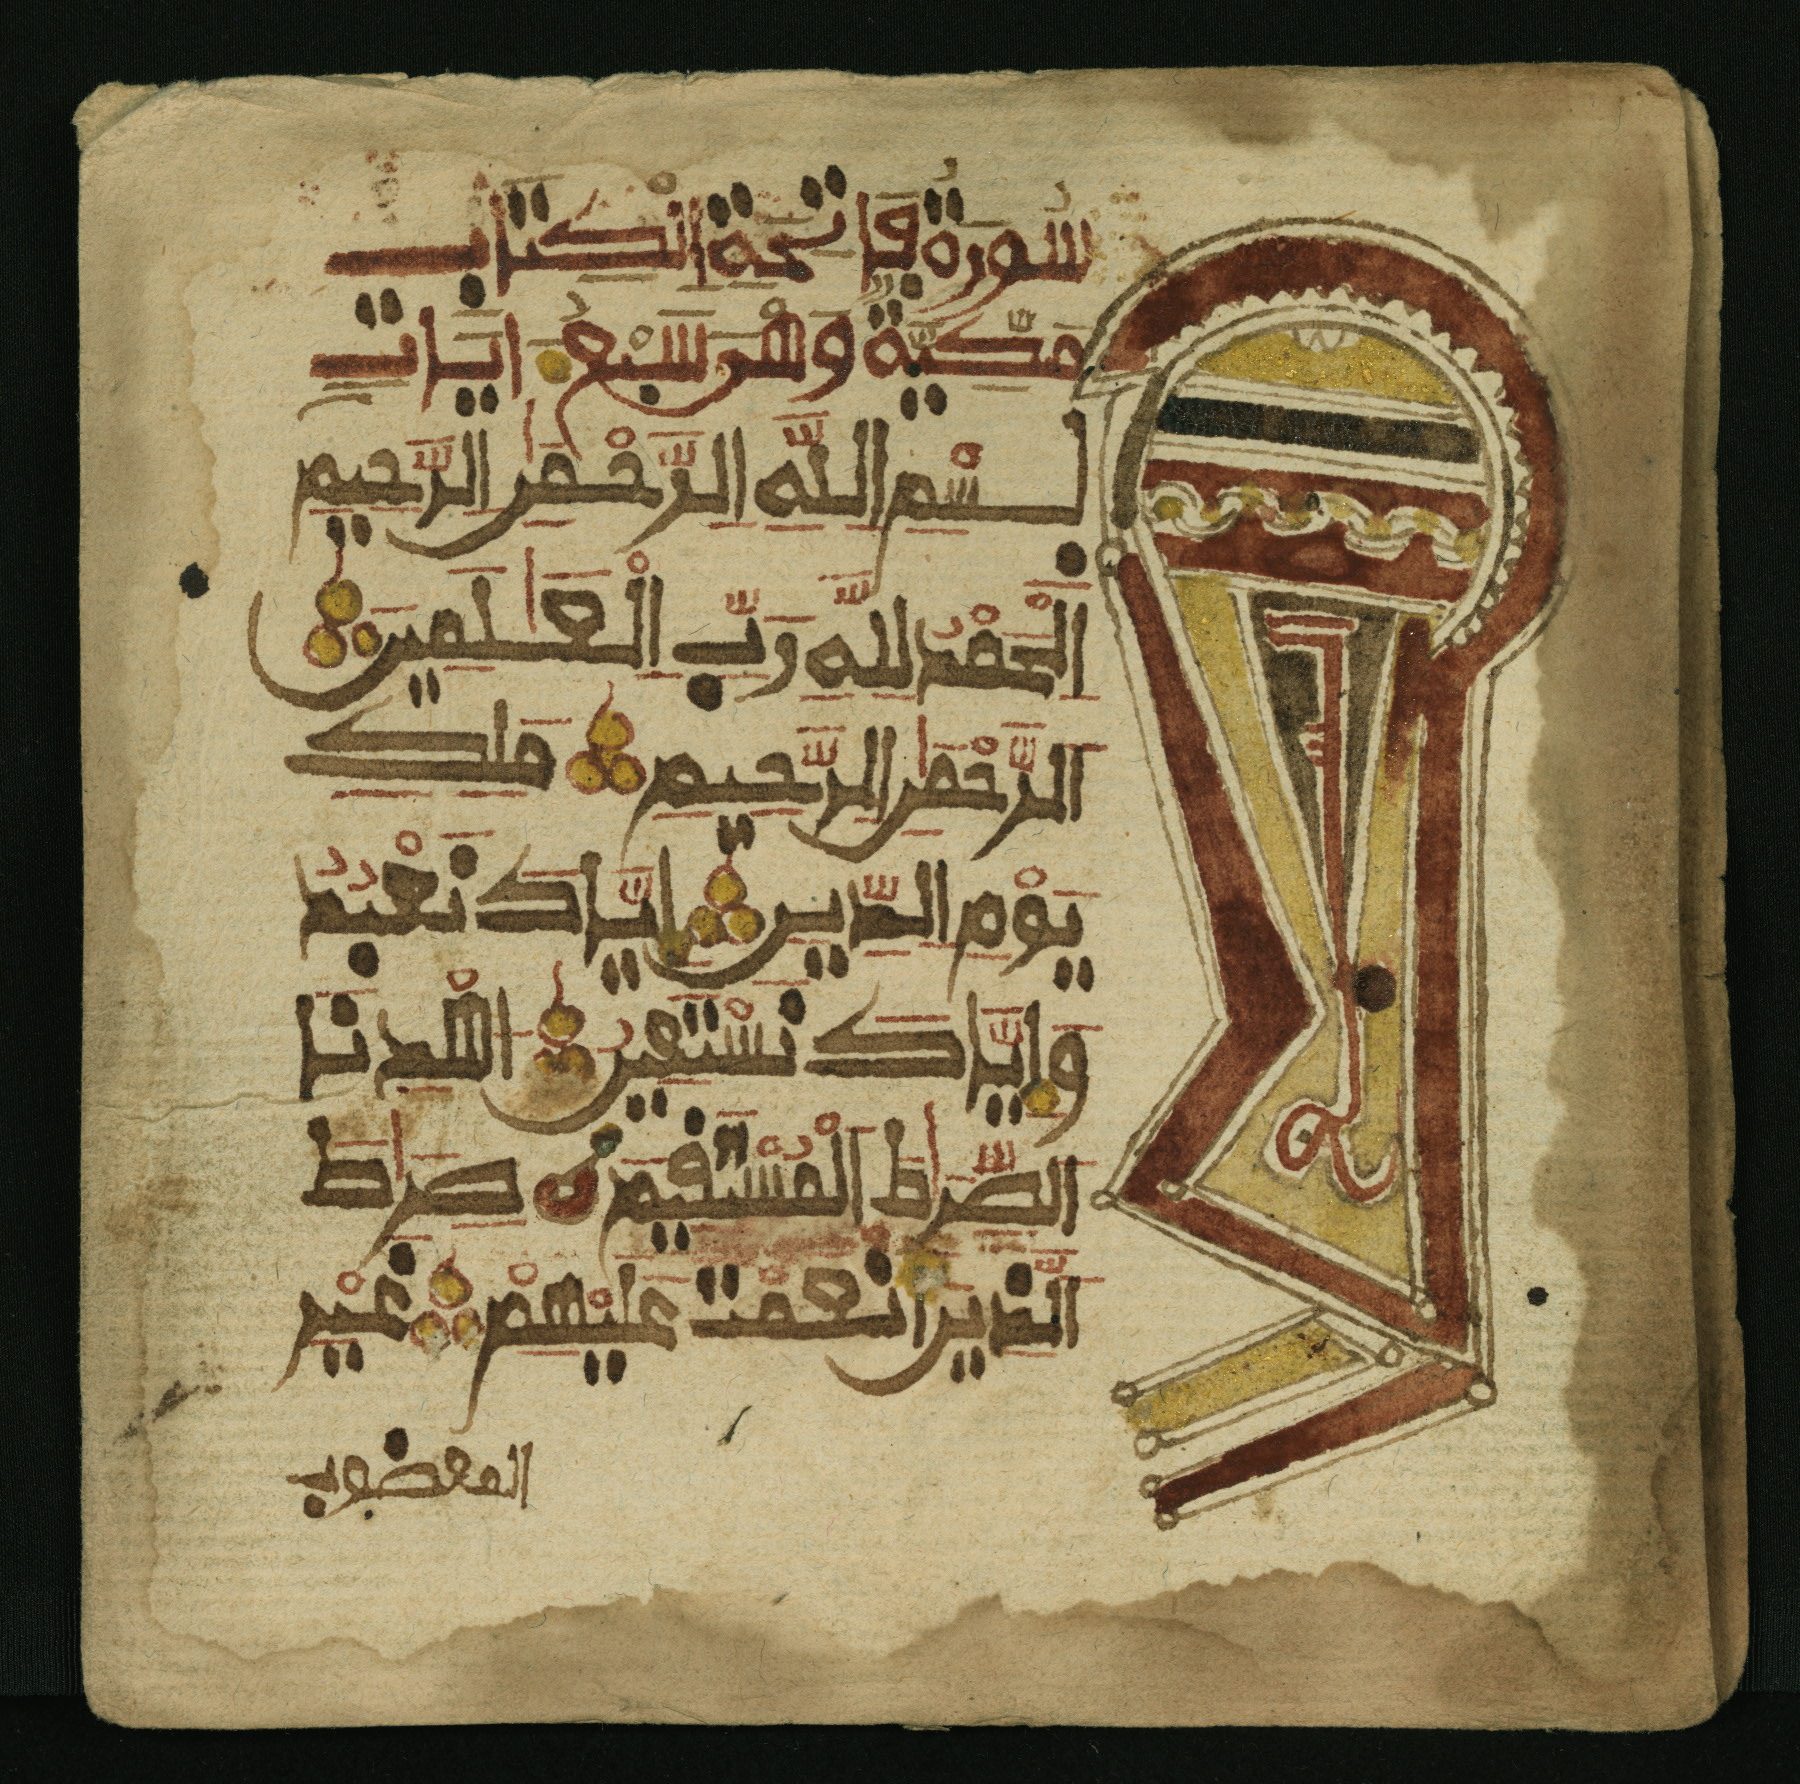 سُورَةُ فَاتِحَةِ الْكِتَابِ
مَكِّيَّةٌ وَهْىَ سَبْعُ ءَايَاتٍ
بِسْمِ اللَّهِ الرَّحْمَٰنِ الرَّحِيمِ
الْحَمْدُ لِلَّهِ رَبِّ الْعَٰلَمِينَ
الرَّحْمَٰنِ الرَّحِيمِ مَلِكِ
يَوْمِ الدِّينِ إِيَّاكَ نَعْبُدُ
وَإِيَّاكَ نَسْتَعِينُ اهْدِنَا
الصِّرَٰطَ الْمُسْتَقِيمَ صِرَٰطَ
الَّذِينَ أَنْعَمْتَ عَلَيْهِمْ غَيْرِ
المغضوب